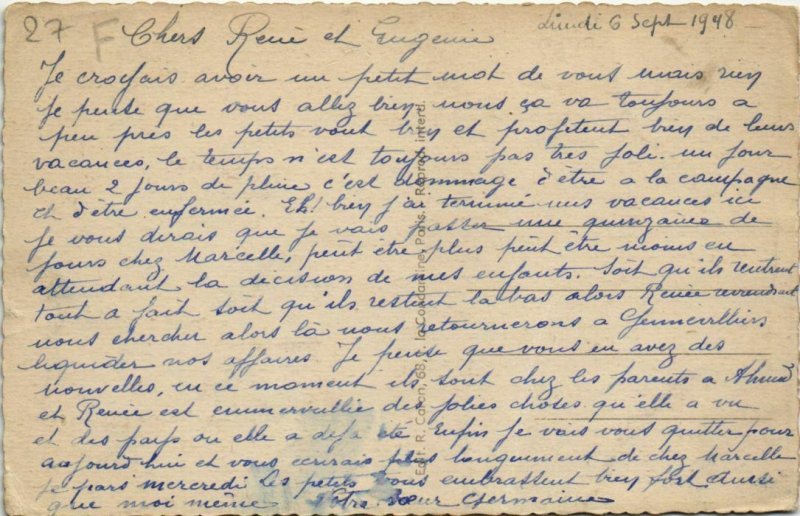 27 F Chers René et Eugenie Lundi 6 Sept 1948
Je croyais avoir un petit mot de vous mais rien
je pense que vous allez bien, nous ça va toujours a
peu près les petits vont bien et profitent bien de leurs
vacances, le temps n'est toujours pas tres joli. un jour
beau 2 jours de pluie c'est dommage d'être a la campagne
et d'être enfermée. Eh! bien j'ai terminé mes vacances ici
je vous dirais que je vais passer une quinzaine de
jours chez Marcelle, peut être plus peut être moins en
attendant la décision de mes enfants. Soit qu'ils rentrent
tout a fait soit qu'ils restent la bas alors Renée reviendrait
nous chercher alors là nous retournerons a Gennevilliers
liquider nos affaires. Je pense que vous en avez des
nouvelles, en ce moment ils sont chez les parents a Ahmed
et Renée est emmerveillée des jolies choses qu'elle a vu
et des pays ou elle a déja été. Enfin je vais vous quitter pour
aujourd'hui et vous écrirais plus longuement de chez Marcelle
je pars mercredi les petits vous embrassent bien fort aussi
que moi même Votre sœur Germaine
Edit. R. Caron, 68, Paris. Reprod. interd.